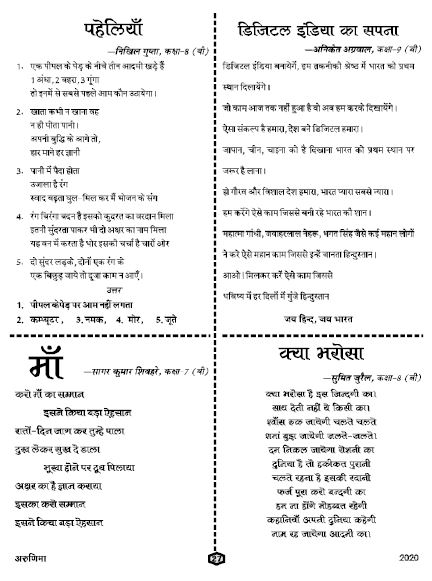 पहेलियाँ
—निखिल गुप्ता, कक्षा-8 (बी)
1. एक पीपल के पेड़ के नीचे तीन आदमी खड़े हैं
1 अंधा, 2 बहरा, 3 गूंगा
तो इनमें से सबसे पहले आम कौन उठायेगा।
2. खाता कभी न खाना वह
न ही पीता पानी।
अपनी बुद्धि के आगे तो,
हार माने हर ज्ञानी
3. पानी में पैदा होता
उजाला है रंग
स्वाद बढ़ाता घुल-मिल कर मैं भोजन के संग
4. रंग बिरंगा बदन है इसको कुदरत का वरदान मिला
इतनी सुन्दरता पाकर भी दो अक्षर का नाम मिला
यह वन में करता है भोर इसकी चर्चा है चारों ओर
5. दो सुंदर लड़के, दोनों एक रंग के
एक बिछुड़ जाये तो दूजा काम न आएँ।
उत्तर
1. पीपल के पेड़ पर आम नहीं लगता
2. कम्प्यूटर, 3. नमक, 4. मोर, 5. जूते
डिजिटल इंडिया का सपना
—अनिकेत अग्रवाल, कक्षा-9 (बी)
डिजिटल इंडिया बनायेगें, हम तकनीकी श्रेष्ठ में भारत को प्रथम
स्थान दिलायेंगे।
जो काम आज तक नहीं हुआ है वो अब हम करके दिखायेंगे।
ऐसा संकल्प है हमारा, देश बने डिजिटल हमारा।
जापान, चीन, चाइना को है दिखाना भारत को प्रथम स्थान पर
जरूर है लाना।
हो गौरव और विशाल देश हमारा, भारत प्यारा सबसे न्यारा।
हम करेंगे ऐसे काम जिससे बनी रहे भारत की शान।
महात्मा गांधी, जवाहरलाल नेहरू, भगत सिंह जैसे कई महान लोगों
ने करे ऐसे महान काम जिससे इन्हें जानता हिन्दुस्तान।
आओ। मिलकर करें ऐसे काम जिससे
भविष्य में हर दिलों में गुंजे हिन्दुस्तान
जय हिन्द, जय भारत
माँ
—सागर कुमार शिवहरे, कक्षा-7 (बी)
करो माँ का सम्मान
इसने किया बड़ा ऐहसान
रातों-दिन जाग कर तुम्हे पाला
दुख लेकर सुख दे डाला
भूखा होने पर दूध पिलाया
अक्षर का है ज्ञान कराया
इसका करो सम्मान
इसने किया बड़ा ऐहसान
क्या भरोसा
—सुमित जुरैल, कक्षा-8 (बी)
क्या भरोसा है इस जिन्दगी का।
साथ देती नहीं ये किसी का।
श्वाँस रुक जायेगी चलते चलते
शमां बुझ जायेगी जलते-जलते।
दम निकल जायेगा रोशनी का
दुनिया है तो हकीकत पुरानी
चलते रहना है इसकी रवानी
फर्ज पूरा करो बन्दगी का
हम ना होंगे मोहब्बत रहेगी
कहानियाँ अपनी दुनिया कहेगी
नाम रह जायेगा आदमी का।
अरुणिमा
27
2020